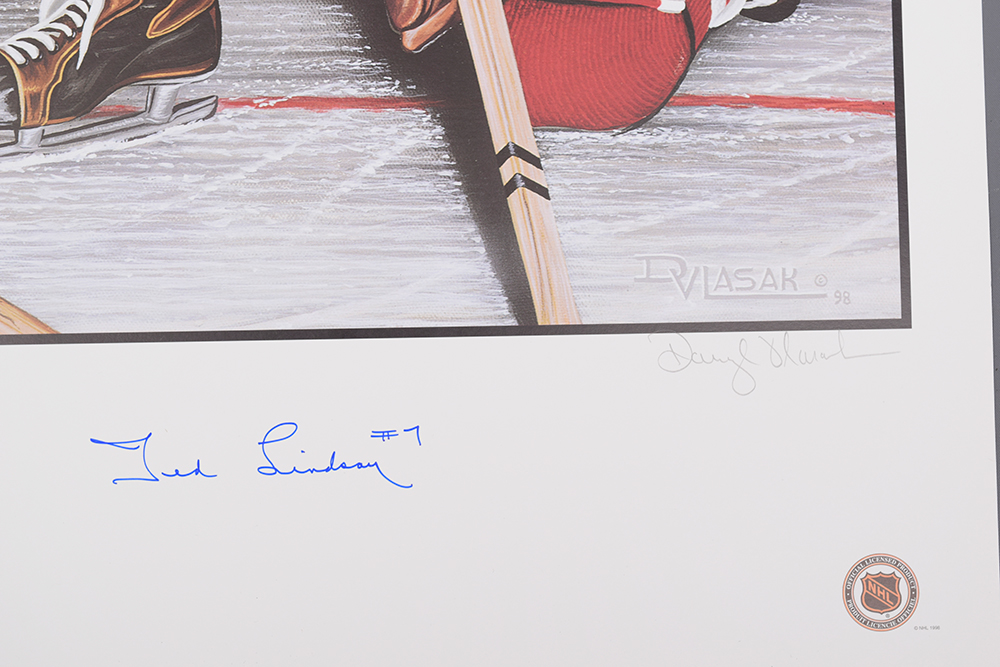 DVLASAK © 98
Daryl Vlasak
Ted Lindsay #7
OFFICIAL LICENSED PRODUCT
NHL
®
PRODUIT LICENCIÉ OFFICIEL
© NHL 1998